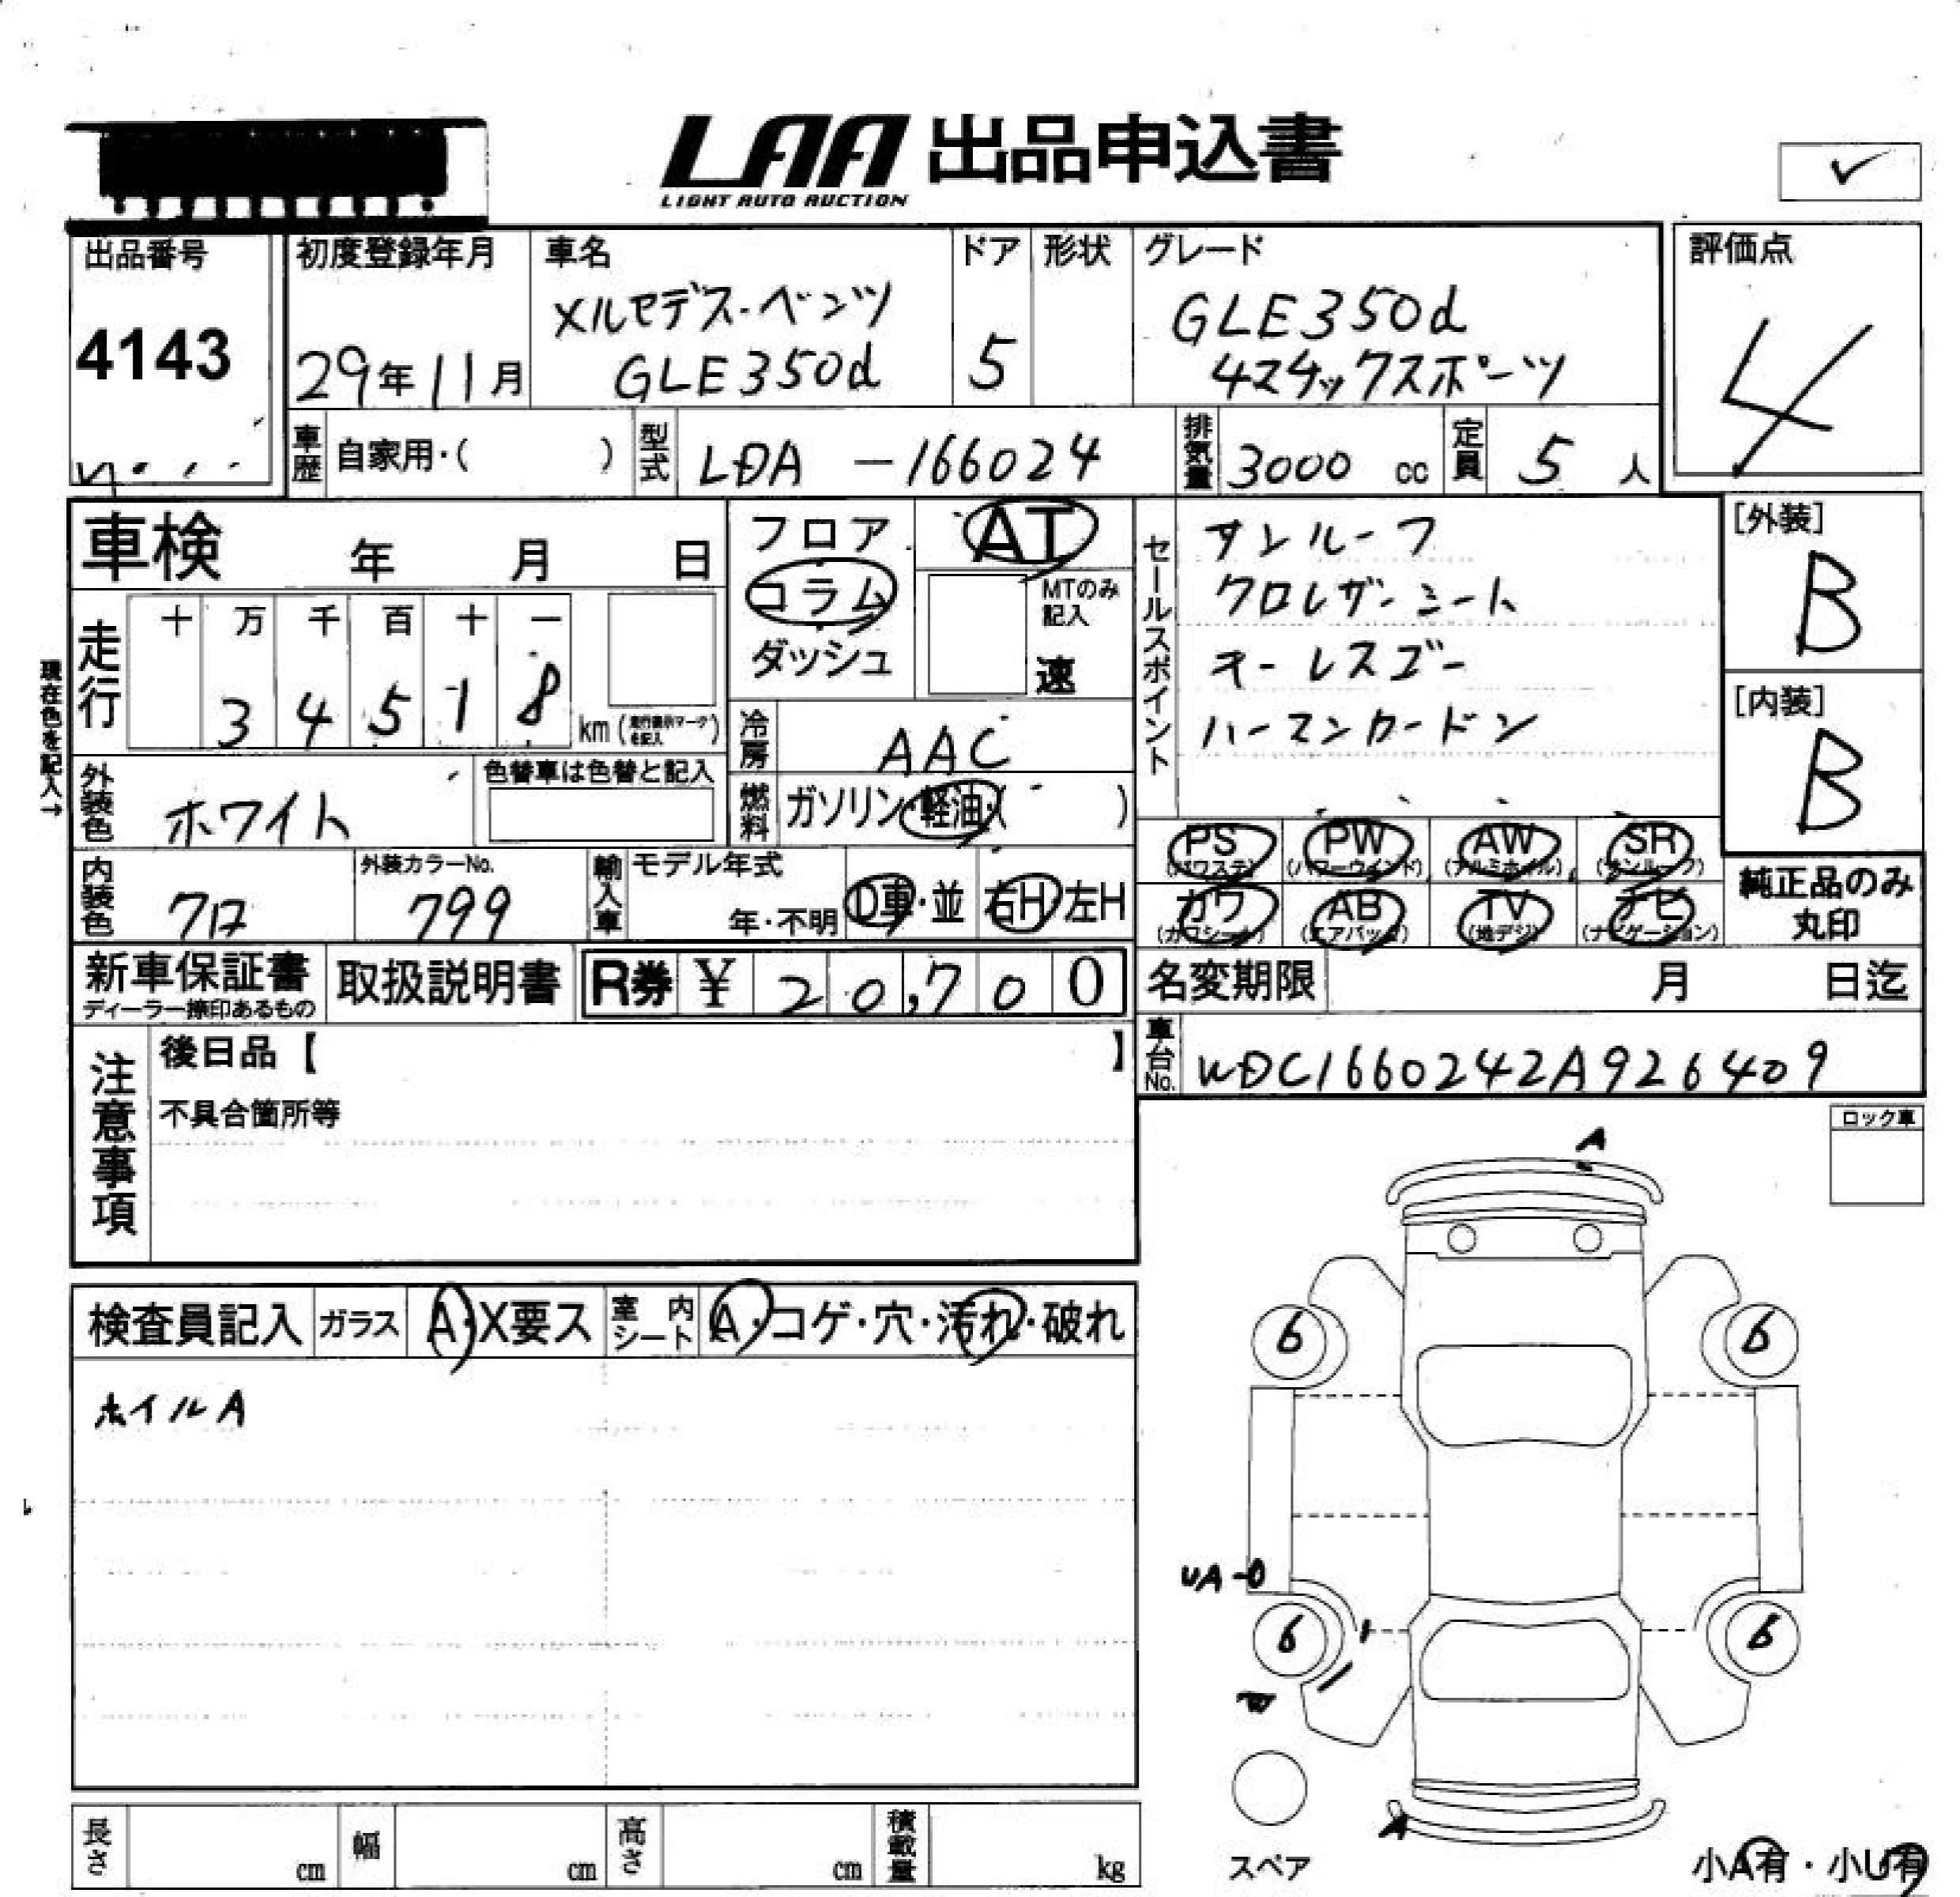 LAA 出品申込書
LIGHT AUTO AUCTION
✓
出品番号
4143
初度登録年月
29年11月
車名
メルセデス・ベンツ
GLE350d
ドア
5
形状
グレード
GLE350d
4マチックスポーツ
評価点
4
車歴 自家用・( )
型式 LDA -166024
排気量 3000 cc
定員 5 人
車検 年 月 日
フロア
コラム
ダッシュ
AT
MTのみ
記入
速
セールスポイント
サンルーフ
クロレザーシート
キーレスゴー
ハーマンカードン
[外装]
B
[内装]
B
現在色を記入→
走行
十 万 千 百 十 一
3 4 5 1 8
km (走行表示マークを記入)
冷房 AAC
外装色 ホワイト
色替車は色替と記入
燃料 ガソリン・軽油・( )
PS (パワステ)
PW (パワーウインド)
AW (アルミホイル)
SR (サンルーフ)
カワ (カワシート)
AB (エアバッグ)
TV (地デジ)
ナビ (ナビゲーション)
純正品のみ
丸印
内装色 クロ
外装カラーNo.
799
輸入車
モデル年式
年・不明
D車・並
右H 左H
新車保証書
ディーラー捺印あるもの
取扱説明書
R券 ¥ 20,700
名変期限 月 日迄
車台No. WDC1660242A926409
注意事項
後日品【 】
不具合箇所等
ロック車
検査員記入 ガラス A・X要ス 室内シート A・コゲ・穴・汚れ・破れ
ホイルA
A
6
6
UA
6
6
W
A
スペア
小A有・小U有
長さ cm
幅 cm
高さ cm
積載量 kg